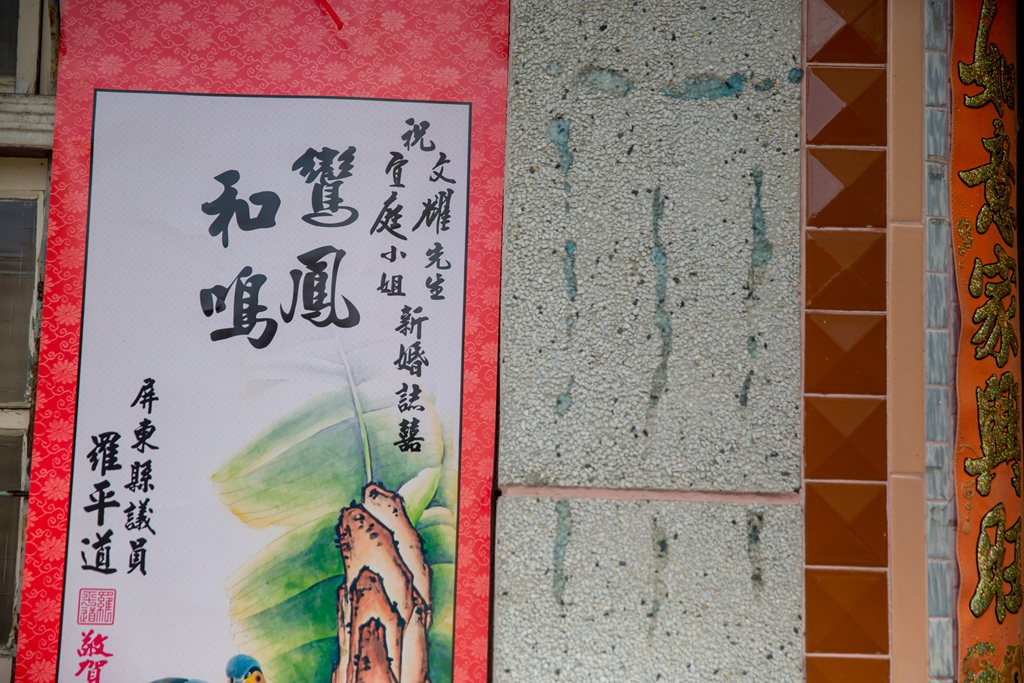 如意家興財
祝
文耀先生
宜庭小姐
新婚誌囍
鸞鳳
和鳴
屏東縣議員
羅平道
羅平道
敬賀